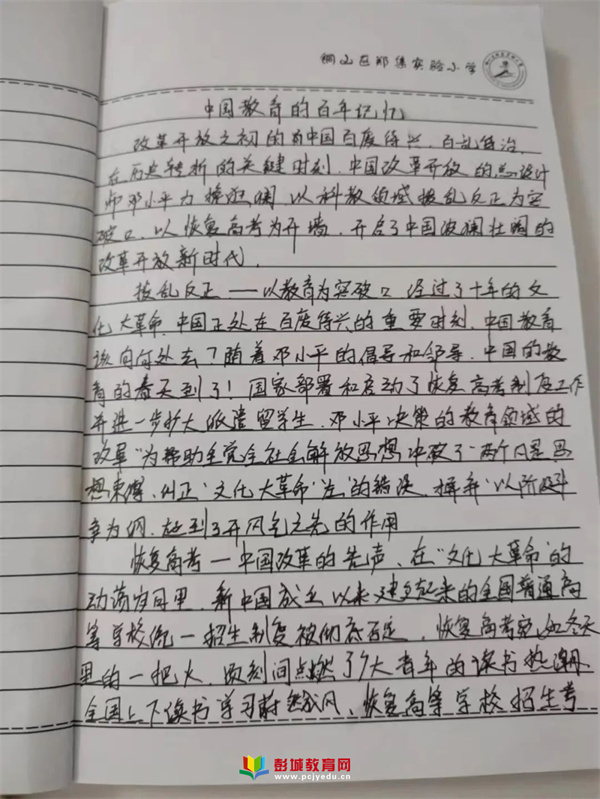 铜山区郑集实验小学
中国教育的百年记忆
改革开放之初的中国百废待兴，百乱待治，
在历史转折的关键时刻，中国改革开放的总设计
师邓小平力挽狂澜，以科教领域拨乱反正为突
破口，以恢复高考为开端，开启了中国波澜壮阔的
改革开放新时代，
拨乱反正——以教育为突破口 经过了十年的文
化大革命，中国正处在百废待兴的重要时刻，中国教育
该向何处去？随着邓小平的倡导和领导，中国的教
育的春天到了！国家部署和启动了恢复高考制度工作
并进一步扩大派遣留学生，邓小平决策的教育领域的
改革“为帮助全党全社会解放思想冲破了“两个凡是”思
想束缚，纠正“文化大革命”“左”的错误，摒弃“以阶级斗
争为纲，起到了开风气之先的作用
恢复高考—中国改革的先声，在“文化大革命”的
动荡岁月里，新中国成立以来建立起来的全国普通高
等学校统一招生制度被彻底否定，恢复高考宛如冬天
里的一把火，顷刻间点燃了广大青年的读书热潮，
全国上下读书学习蔚然成风，恢复高等学校招生考
彭城教育网
www.pcjyedu.cn